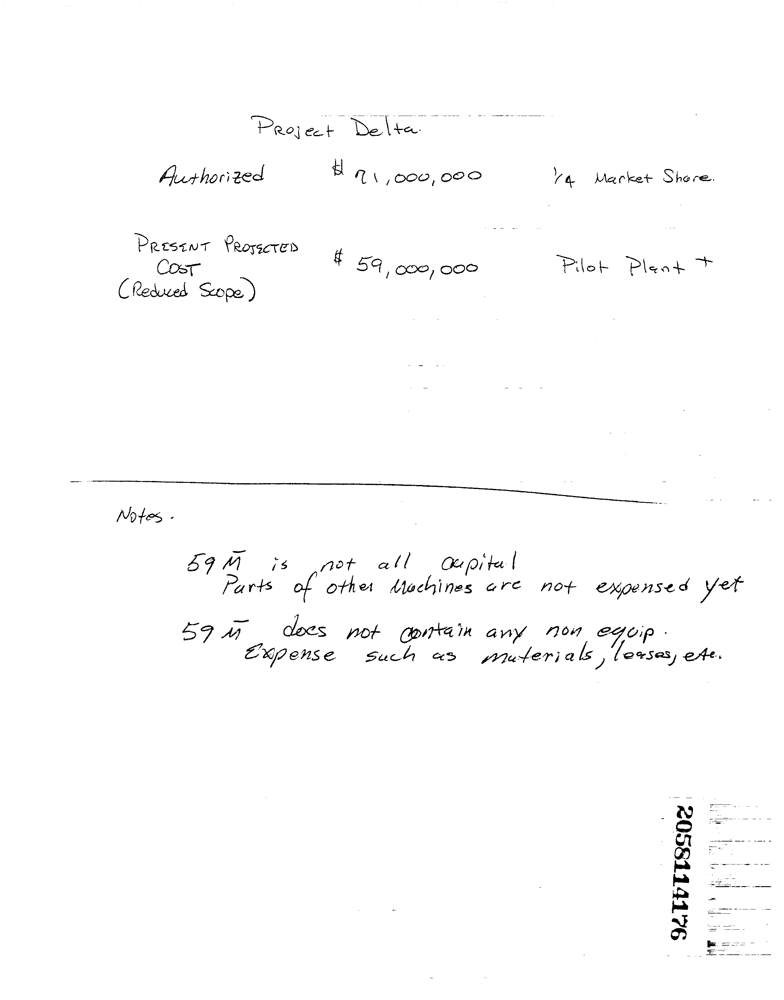 Project Delta.
Authorized $ 71,000,000 1/4 Market Share.
PRESENT PROJECTED
COST $ 59,000,000 Pilot Plant +
(Reduced Scope)
Notes.
59 M̅ is not all capital
Parts of other Machines are not expensed yet
59 M̅ does not contain any non equip.
Expense such as materials, leases, etc.
2058114176